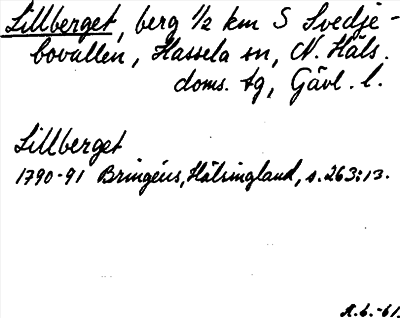 Lillberget, berg 1/2 km S Svedje-
bovallen, Hassela sn, N. Häls.
doms. tg, Gävl. l.
Lillberget
1790-91 Bringéus, Hälsingland, s. 263:13.
R.b.-61.